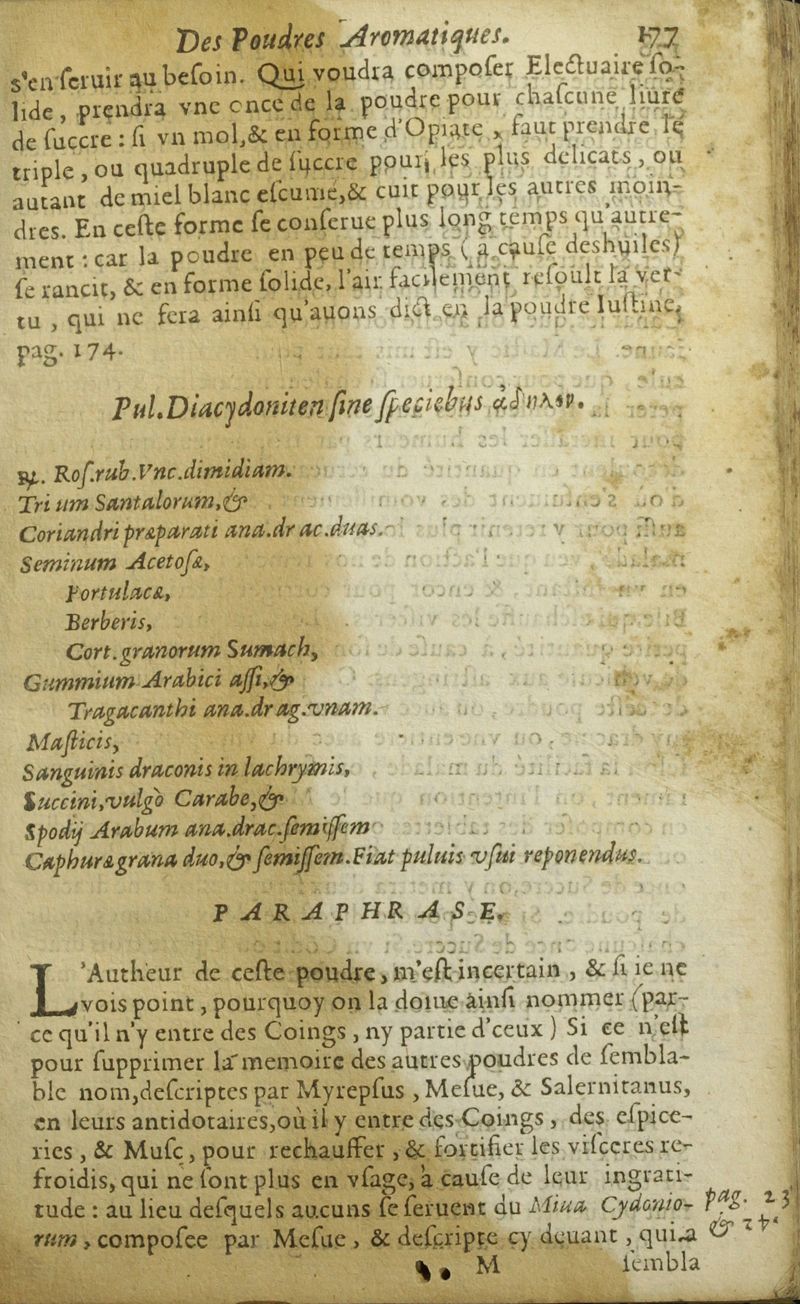 Des Poudres Aromatiques. 177
s'en ſeruir au beſoin. Qui voudra compoſer Electuaire ſo-
lide, prendra vne once de la poudre pour chaſcune liure
de ſuccre : ſi vn mol, & en forme d'Opiate, faut prendre le
triple, ou quadruple de ſuccre pour les plus delicats, ou
autant de miel blanc eſcumé, & cuit pour les autres moin-
dres. En ceſte forme ſe conſerue plus long temps qu'autre-
ment : car la poudre en peu de temps ( à cauſe des huiles)
ſe rancit, & en forme ſolide, l'air facilement reſoult la ver-
tu, qui ne ſera ainſi qu'auons dict en la poudre
pag. 174.
Pul. Diacydoniten ſine ſpeciebus ἄδηλον.
℞. Roſ. rub. Vnc. dimidiam.
Trium Santalorum, &
Coriandri præparati ana. drac. duas.
Seminum Acetoſæ,
Portulacæ,
Berberis,
Cort. granorum Sumach,
Gummium Arabici aſſi, &
Tragacanthi ana. drag. vnam.
Maſticis,
Sanguinis draconis in lachrymis,
Succini, vulgò Carabe, &
Spodij Arabum ana. drac. ſemiſſem
Caphuræ grana duo, & ſemiſſem. Fiat puluis vſui reponendus.
PARAPHRASE.
L'Autheur de ceſte poudre, m'eſt incertain, & ſi ie ne
vois point, pourquoy on la doiue ainſi nommer (par-
ce qu'il n'y entre des Coings, ny partie d'ceux ) Si ce n'eſt
pour ſupprimer la memoire des autres poudres de ſembla-
ble nom, deſcriptes par Myrepſus, Meſue, & Salernitanus,
en leurs antidotaires, où il y entre des Coings, des eſpice-
ries, & Muſc, pour rechauffer, & fortifier les viſceres re-
froidis, qui ne ſont plus en vſage, à cauſe de leur ingrati-
tude : au lieu deſquels aucuns ſe ſeruent du Miua Cydonio- pag. 23
rum, compoſee par Meſue, & deſcripte cy deuant, qui a &
M ſembla